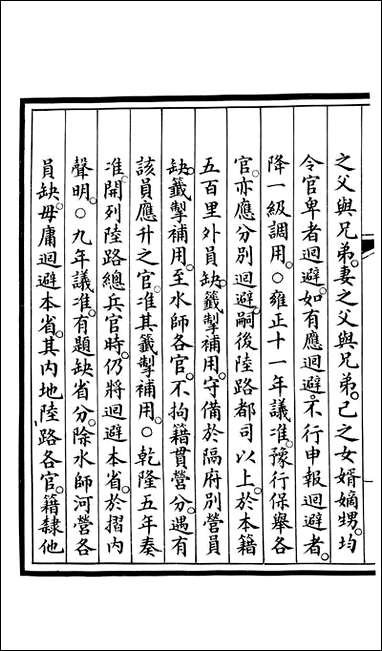 之父與兄弟。妻之父與兄弟。己之女婿嫡甥。均
令官卑者迴避。如有應迴避。不行申報迴避者。
降一級調用。○雍正十一年議准。豫行保舉各
官。亦應分別迴避。嗣後陸路都司以上。於本籍
五百里外員缺。籤掣補用。守備於隔府別營員
缺。籤掣補用。至水師各官。不拘籍貫營分。遇有
該員應升之官。准其籤掣補用。○乾隆五年奏
准。開列陸路總兵官時。仍將迴避本省。於摺內
聲明。○九年議准。有題缺省分。除水師河營各
員缺。毋庸迴避本省。其內地陸路各官。籍隸他